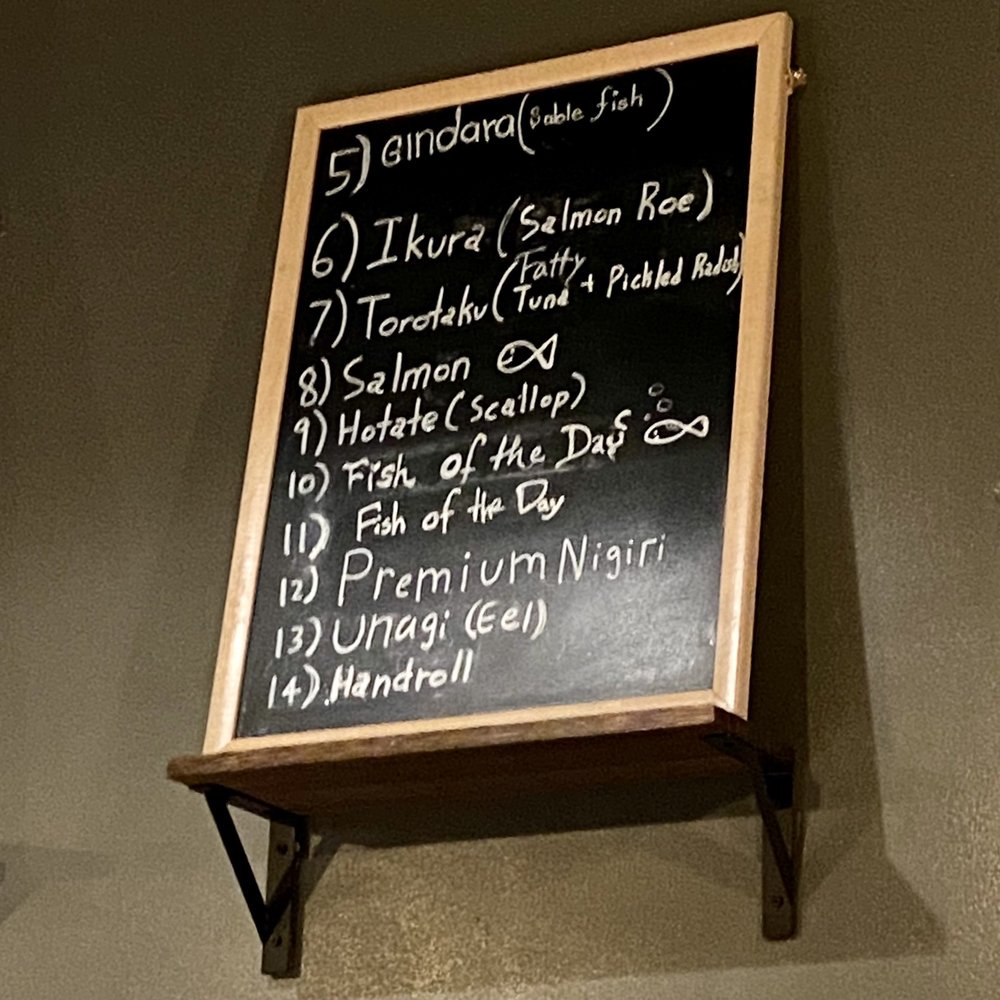 5) Gindara (Sable fish)
6) Ikura (Salmon Roe)
7) Torotaku (Fatty Tuna + Pickled Radish)
8) Salmon
9) Hotate (Scallop)
10) Fish of the Day
11) Fish of the Day
12) Premium Nigiri
13) Unagi (Eel)
14) Handroll